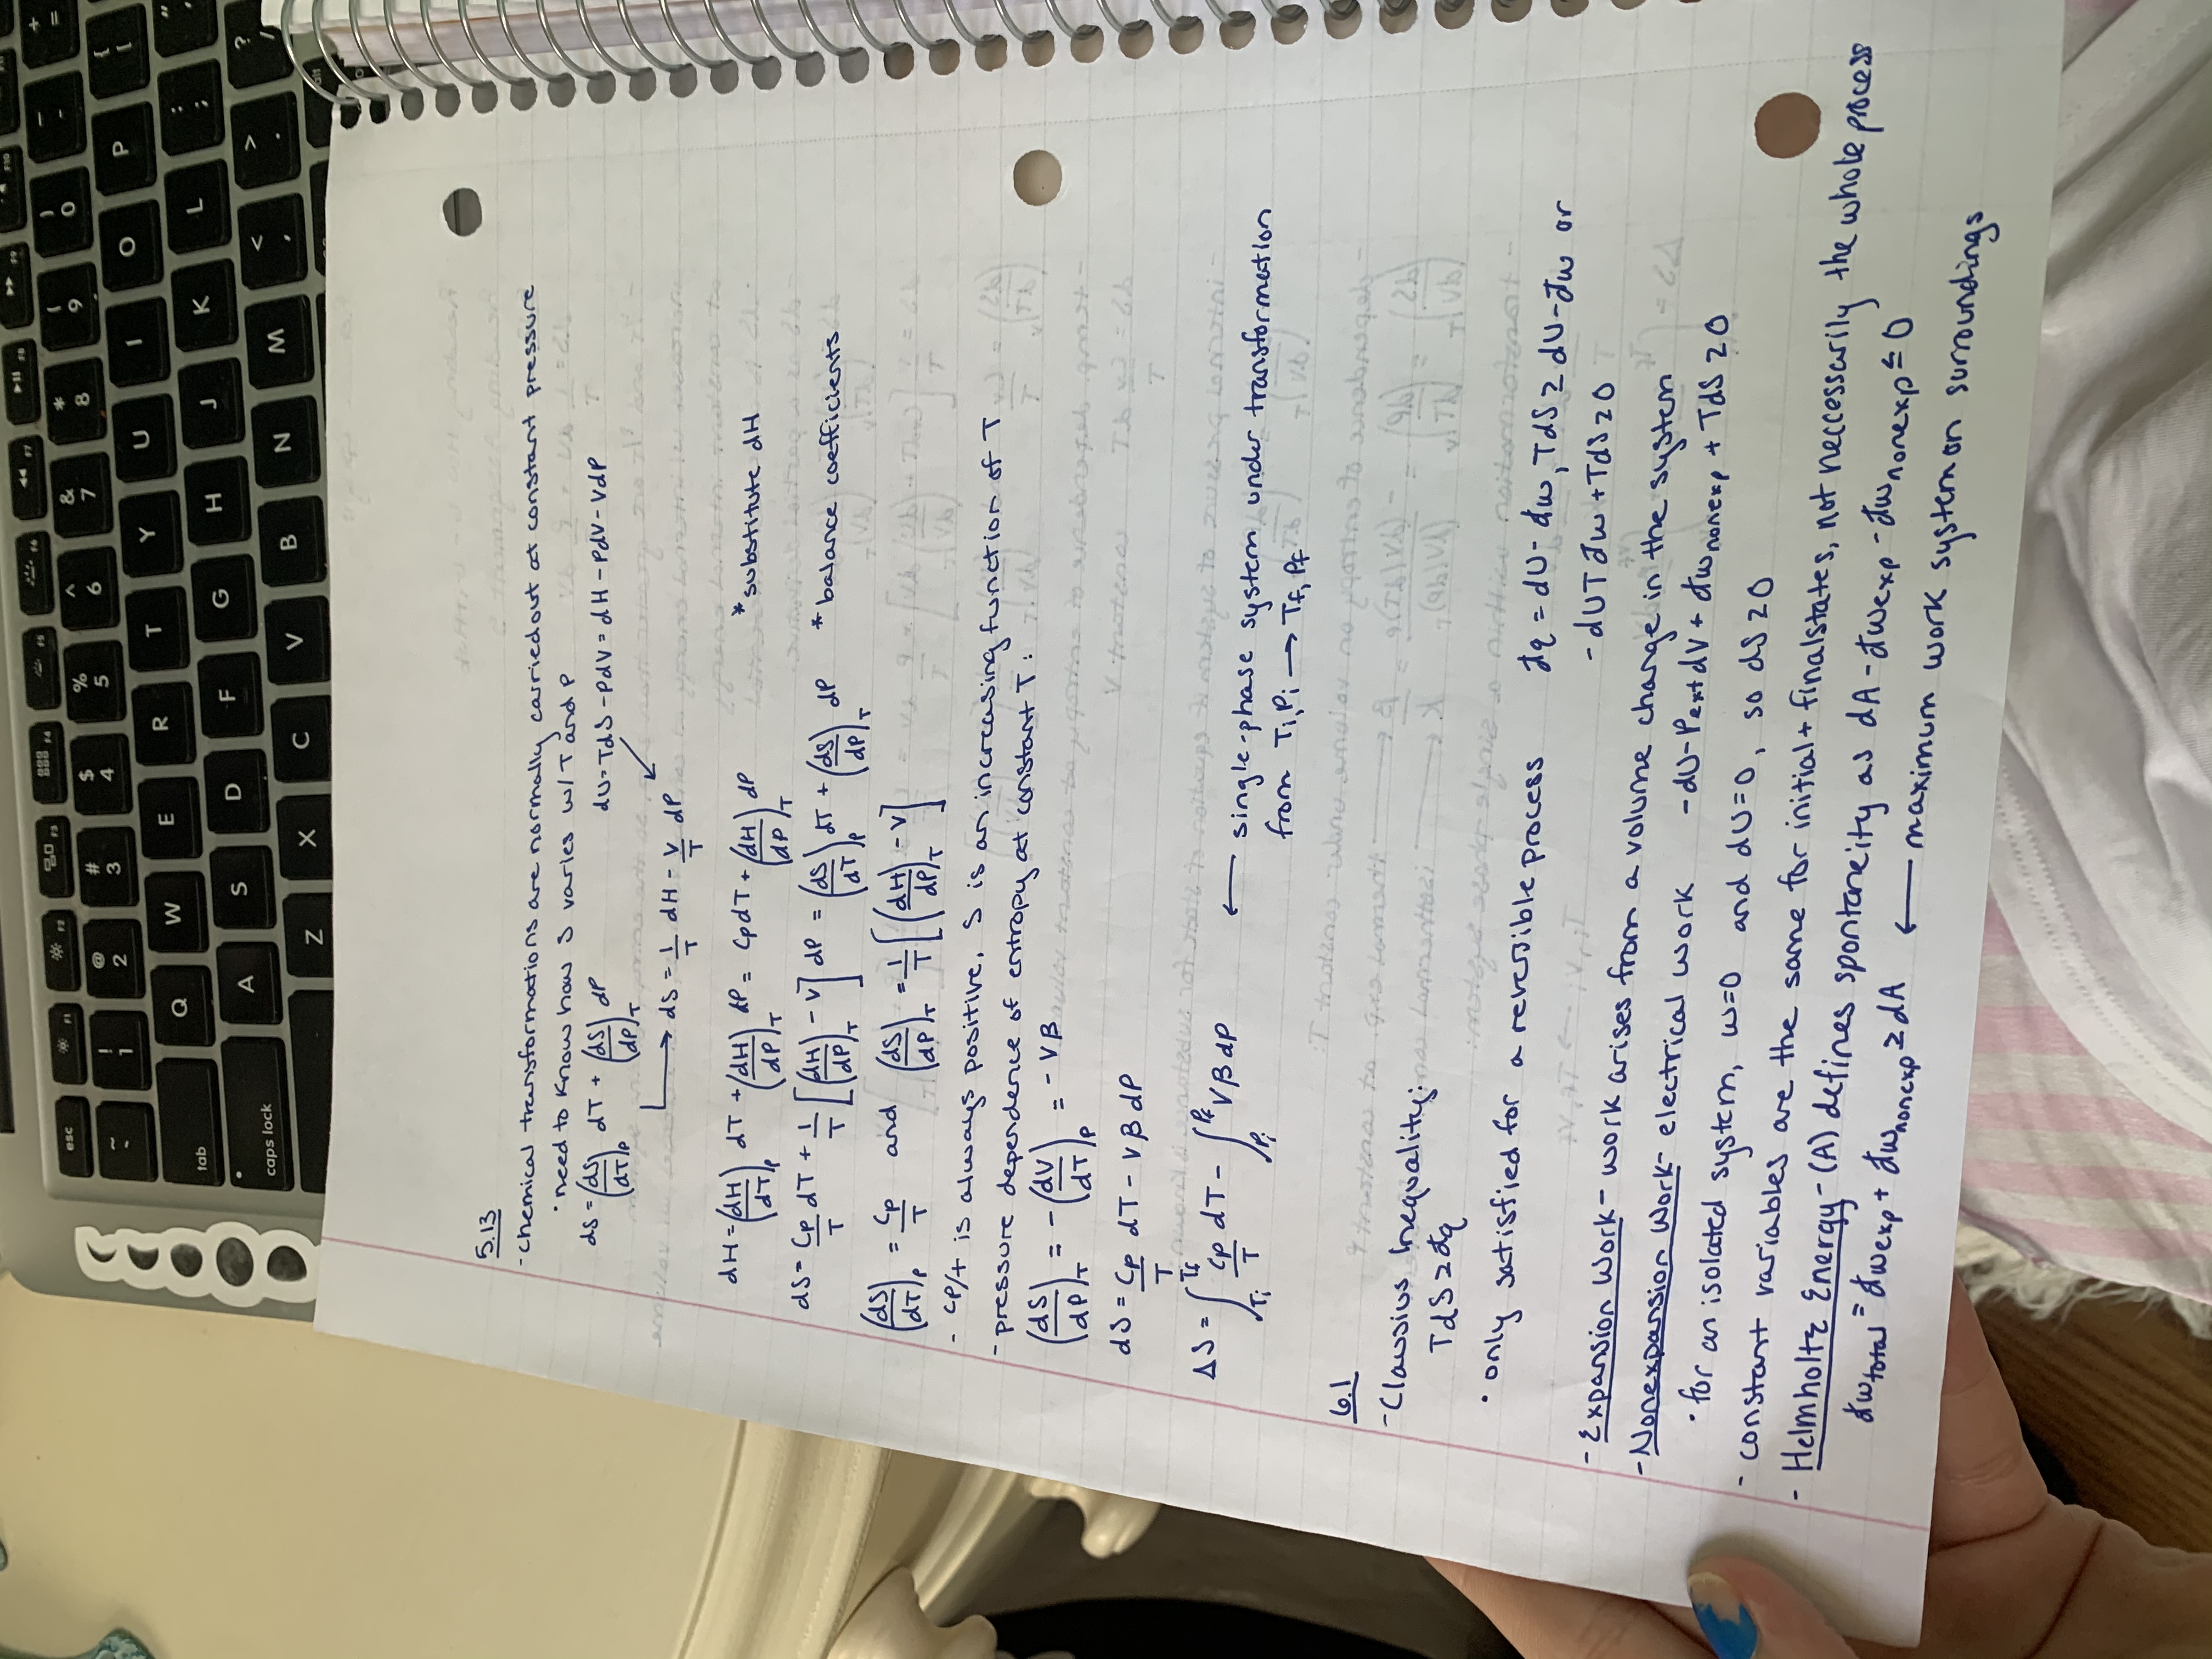 esc F1 F2 F3 F4 F5 F6 F7 F8 F9 F10
~ ` ! 1 @ 2 # 3 $ 4 % 5 ^ 6 & 7 * 8 ( 9 ) 0 _ - + =
tab Q W E R T Y U I O P { [
caps lock A S D F G H J K L : ; "
Z X C V B N M < , > . ? /
alt
5.13
- chemical transformations are normally carried out at constant pressure
• need to know how S varies w/ T and P
dS = (dS/dT)_P dT + (dS/dP)_T dP    dU = TdS - PdV = dH - PdV - VdP
→ dS = 1/T dH - V/T dP
dH = (dH/dT)_P dT + (dH/dP)_T dP = CpdT + (dH/dP)_T dP    * substitute dH
dS = Cp/T dT + 1/T [(dH/dP)_T - V] dP = (dS/dT)_P dT + (dS/dP)_T dP    * balance coefficients
(dS/dT)_P = Cp/T and (dS/dP)_T = 1/T [(dH/dP)_T - V]
- CP/T is always positive, S is an increasing function of T
- pressure dependence of entropy at constant T:
(dS/dP)_T = -(dV/dT)_P = -Vβ
dS = Cp/T dT - Vβ dP
ΔS = ∫_Ti^Tf Cp/T dT - ∫_Pi^Pf Vβ dP ← single-phase system under transformation
from Ti, Pi → Tf, Pf
6.1
- Clausius Inequality:
TdS ≥ đq
• only satisfied for a reversible process    đq = dU - đw, TdS ≥ dU - đw or
- dU + đw + TdS ≥ 0
- Expansion Work - work arises from a volume change in the system
- Nonexpansion Work - electrical work    -dU - P_ext dV + đw_nonexp + TdS ≥ 0
• for an isolated system, w=0 and dU=0, so dS ≥ 0
- constant variables are the same for initial + final states, not neccessarily the whole process
- Helmholtz Energy - (A) defines spontaneity as dA - đw_exp - đw_nonexp ≤ 0
đw_total = đw_exp + đw_nonexp ≥ dA ← maximum work system on surroundings